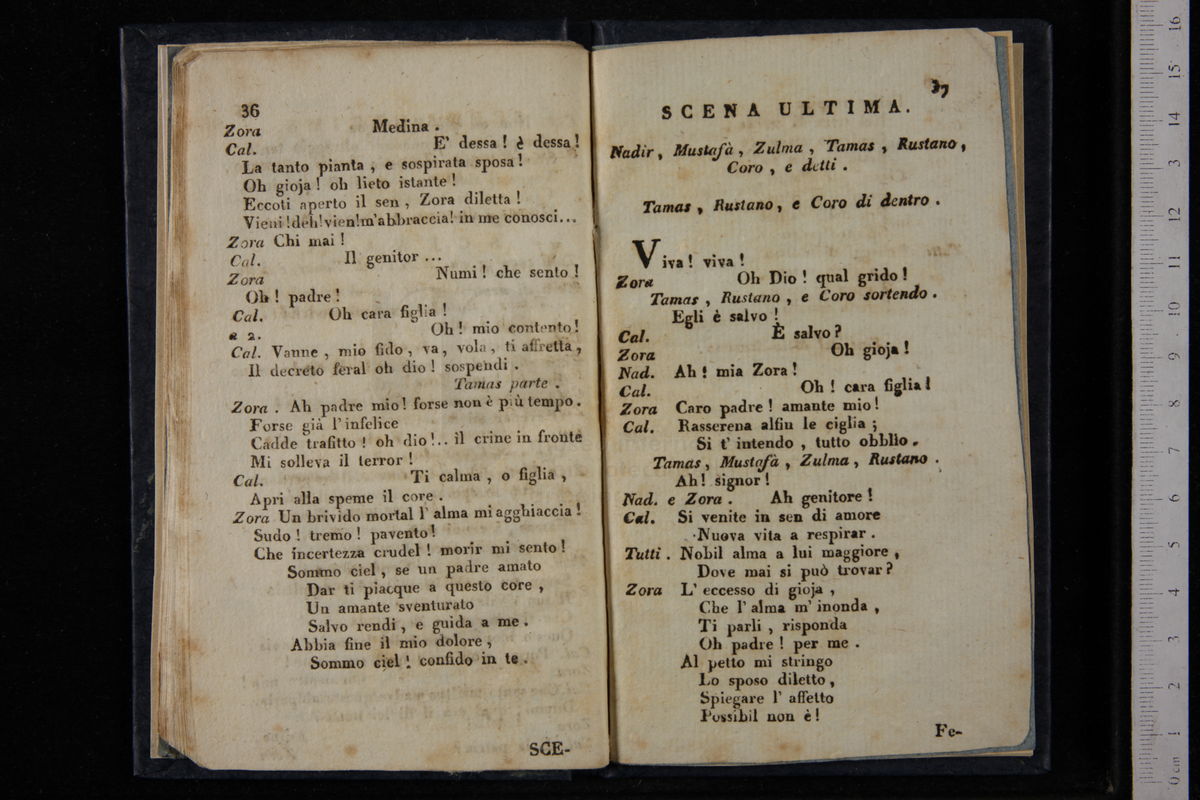 36
Zora Medina .
Cal. E' dessa ! è dessa !
La tanto pianta , e sospirata sposa !
Oh gioja ! oh lieto istante !
Eccoti aperto il sen , Zora diletta !
Vieni ! deh ! vien ! m'abbraccia ! in me conosci ...
Zora Chi mai !
Cal. Il genitor ...
Zora Numi ! che sento !
Oh ! padre !
Cal. Oh cara figlia !
a 2. Oh ! mio contento !
Cal. Vanne , mio fido , va , vola , ti affretta ,
Il decreto feral oh dio ! sospendi .
Tamas parte .
Zora . Ah padre mio ! forse non è più tempo .
Forse già l' infelice
Cadde trafitto ! oh dio !.. il crine in fronte
Mi solleva il terror !
Cal. Ti calma , o figlia ,
Apri alla speme il core .
Zora Un brivido mortal l' alma mi agghiaccia !
Sudo ! tremo ! pavento !
Che incertezza crudel ! morir mi sento !
Sommo ciel , se un padre amato
Dar ti piacque a questo core ,
Un amante sventurato
Salvo rendi , e guida a me .
Abbia fine il mio dolore ,
Sommo ciel ! confido in te .
SCE-
37
SCENA ULTIMA.
Nadir , Mustafà , Zulma , Tamas , Rustano ,
Coro , e detti .
Tamas , Rustano , e Coro di dentro .
Viva ! viva !
Zora Oh Dio ! qual grido !
Tamas , Rustano , e Coro sortendo .
Egli è salvo !
Cal. È salvo ?
Zora Oh gioja !
Nad. Ah ! mia Zora !
Cal. Oh ! cara figlia !
Zora Caro padre ! amante mio !
Cal. Rasserena alfin le ciglia ;
Si t' intendo , tutto obblio .
Tamas , Mustafà , Zulma , Rustano .
Ah ! signor !
Nad. e Zora . Ah genitore !
Cal. Si venite in sen di amore
Nuova vita a respirar .
Tutti . Nobil alma a lui maggiore ,
Dove mai si può trovar ?
Zora L' eccesso di gioja ,
Che l' alma m' inonda ,
Ti parli , risponda
Oh padre ! per me .
Al petto mi stringo
Lo sposo diletto ,
Spiegare l' affetto
Possibil non è !
Fe-
0 cm 1 2 3 4 5 6 7 8 9 10 11 12 13 14 15 16